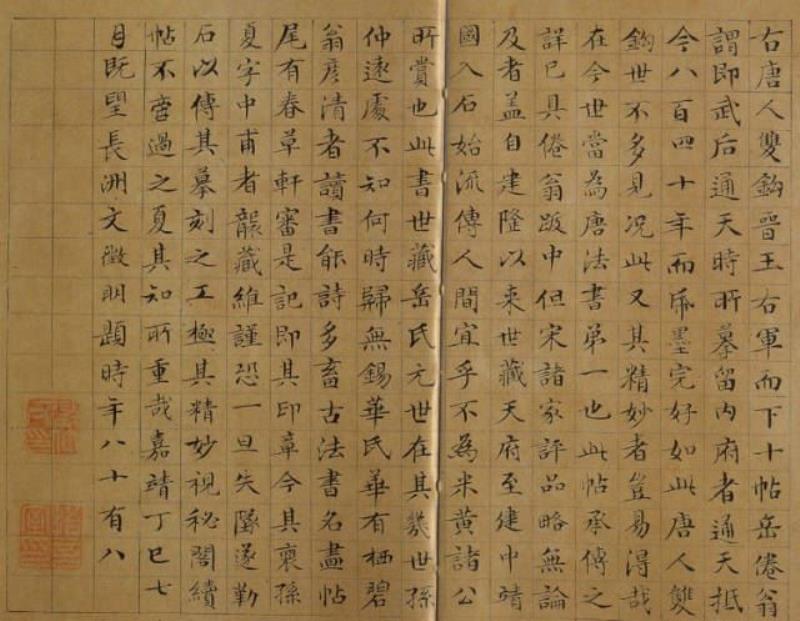 右唐人雙鈎晉王右軍而下十帖岳倦翁
謂即武后通天時所摹留內府者通天抵
今八百四十年而帋墨完好如此唐人雙
鈎世不多見況此又其精妙者豈易得哉
在今世當為唐法書弟一也此帖承傳之
詳已具倦翁跋中但宋諸家評品略無論
及者盖自建隆以来世藏天府至建中靖
國入石始流傳人間宜乎不為米黄諸公
所賞也此書世藏岳氏元世在其幾世孫
仲遠處不知何時歸無錫華氏華有栖碧
翁彥清者讀書能詩多畜古法書名畫帖
尾有春草軒審是記即其印章今其裔孫
夏字中甫者襲藏維謹恐一旦失墜遂勒
石以傳其摹刻之工極其精妙視秘閣續
帖不啻過之夏其知所重哉嘉靖丁巳七
月既望長洲文徵明題時年八十有八